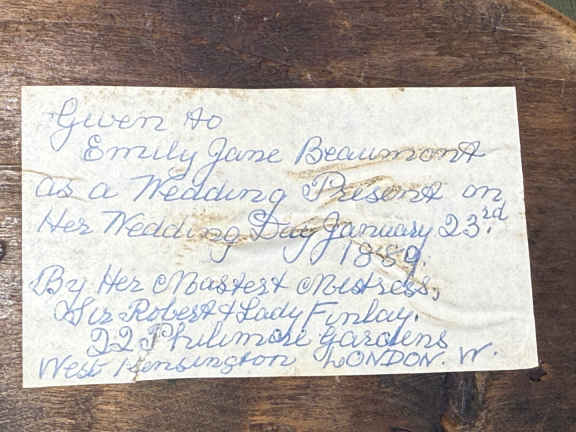 Given to
Emily Jane Beaumont
as a Wedding Present on
Her Wedding Day January 23rd
1889.
By Her Master & Mistress,
Sir Robert & Lady Finlay.
22 Philimore Gardens
West Kensington LONDON. W.